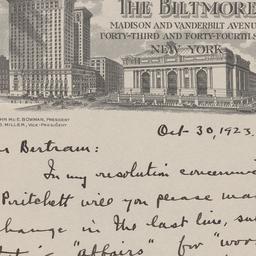 THE BILTMORE
MADISON AND VANDERBILT AVENU
FORTY-THIRD AND FORTY-FOURTH S
NEW YORK
HN McE. BOWMAN, PRESIDENT
MILLER, VICE-PRESIDENT
Oct 30, 1923.
Bertram:
In my resolution concerning
Pritchett will you please ma
change in the last line, su
"affairs" for "wor